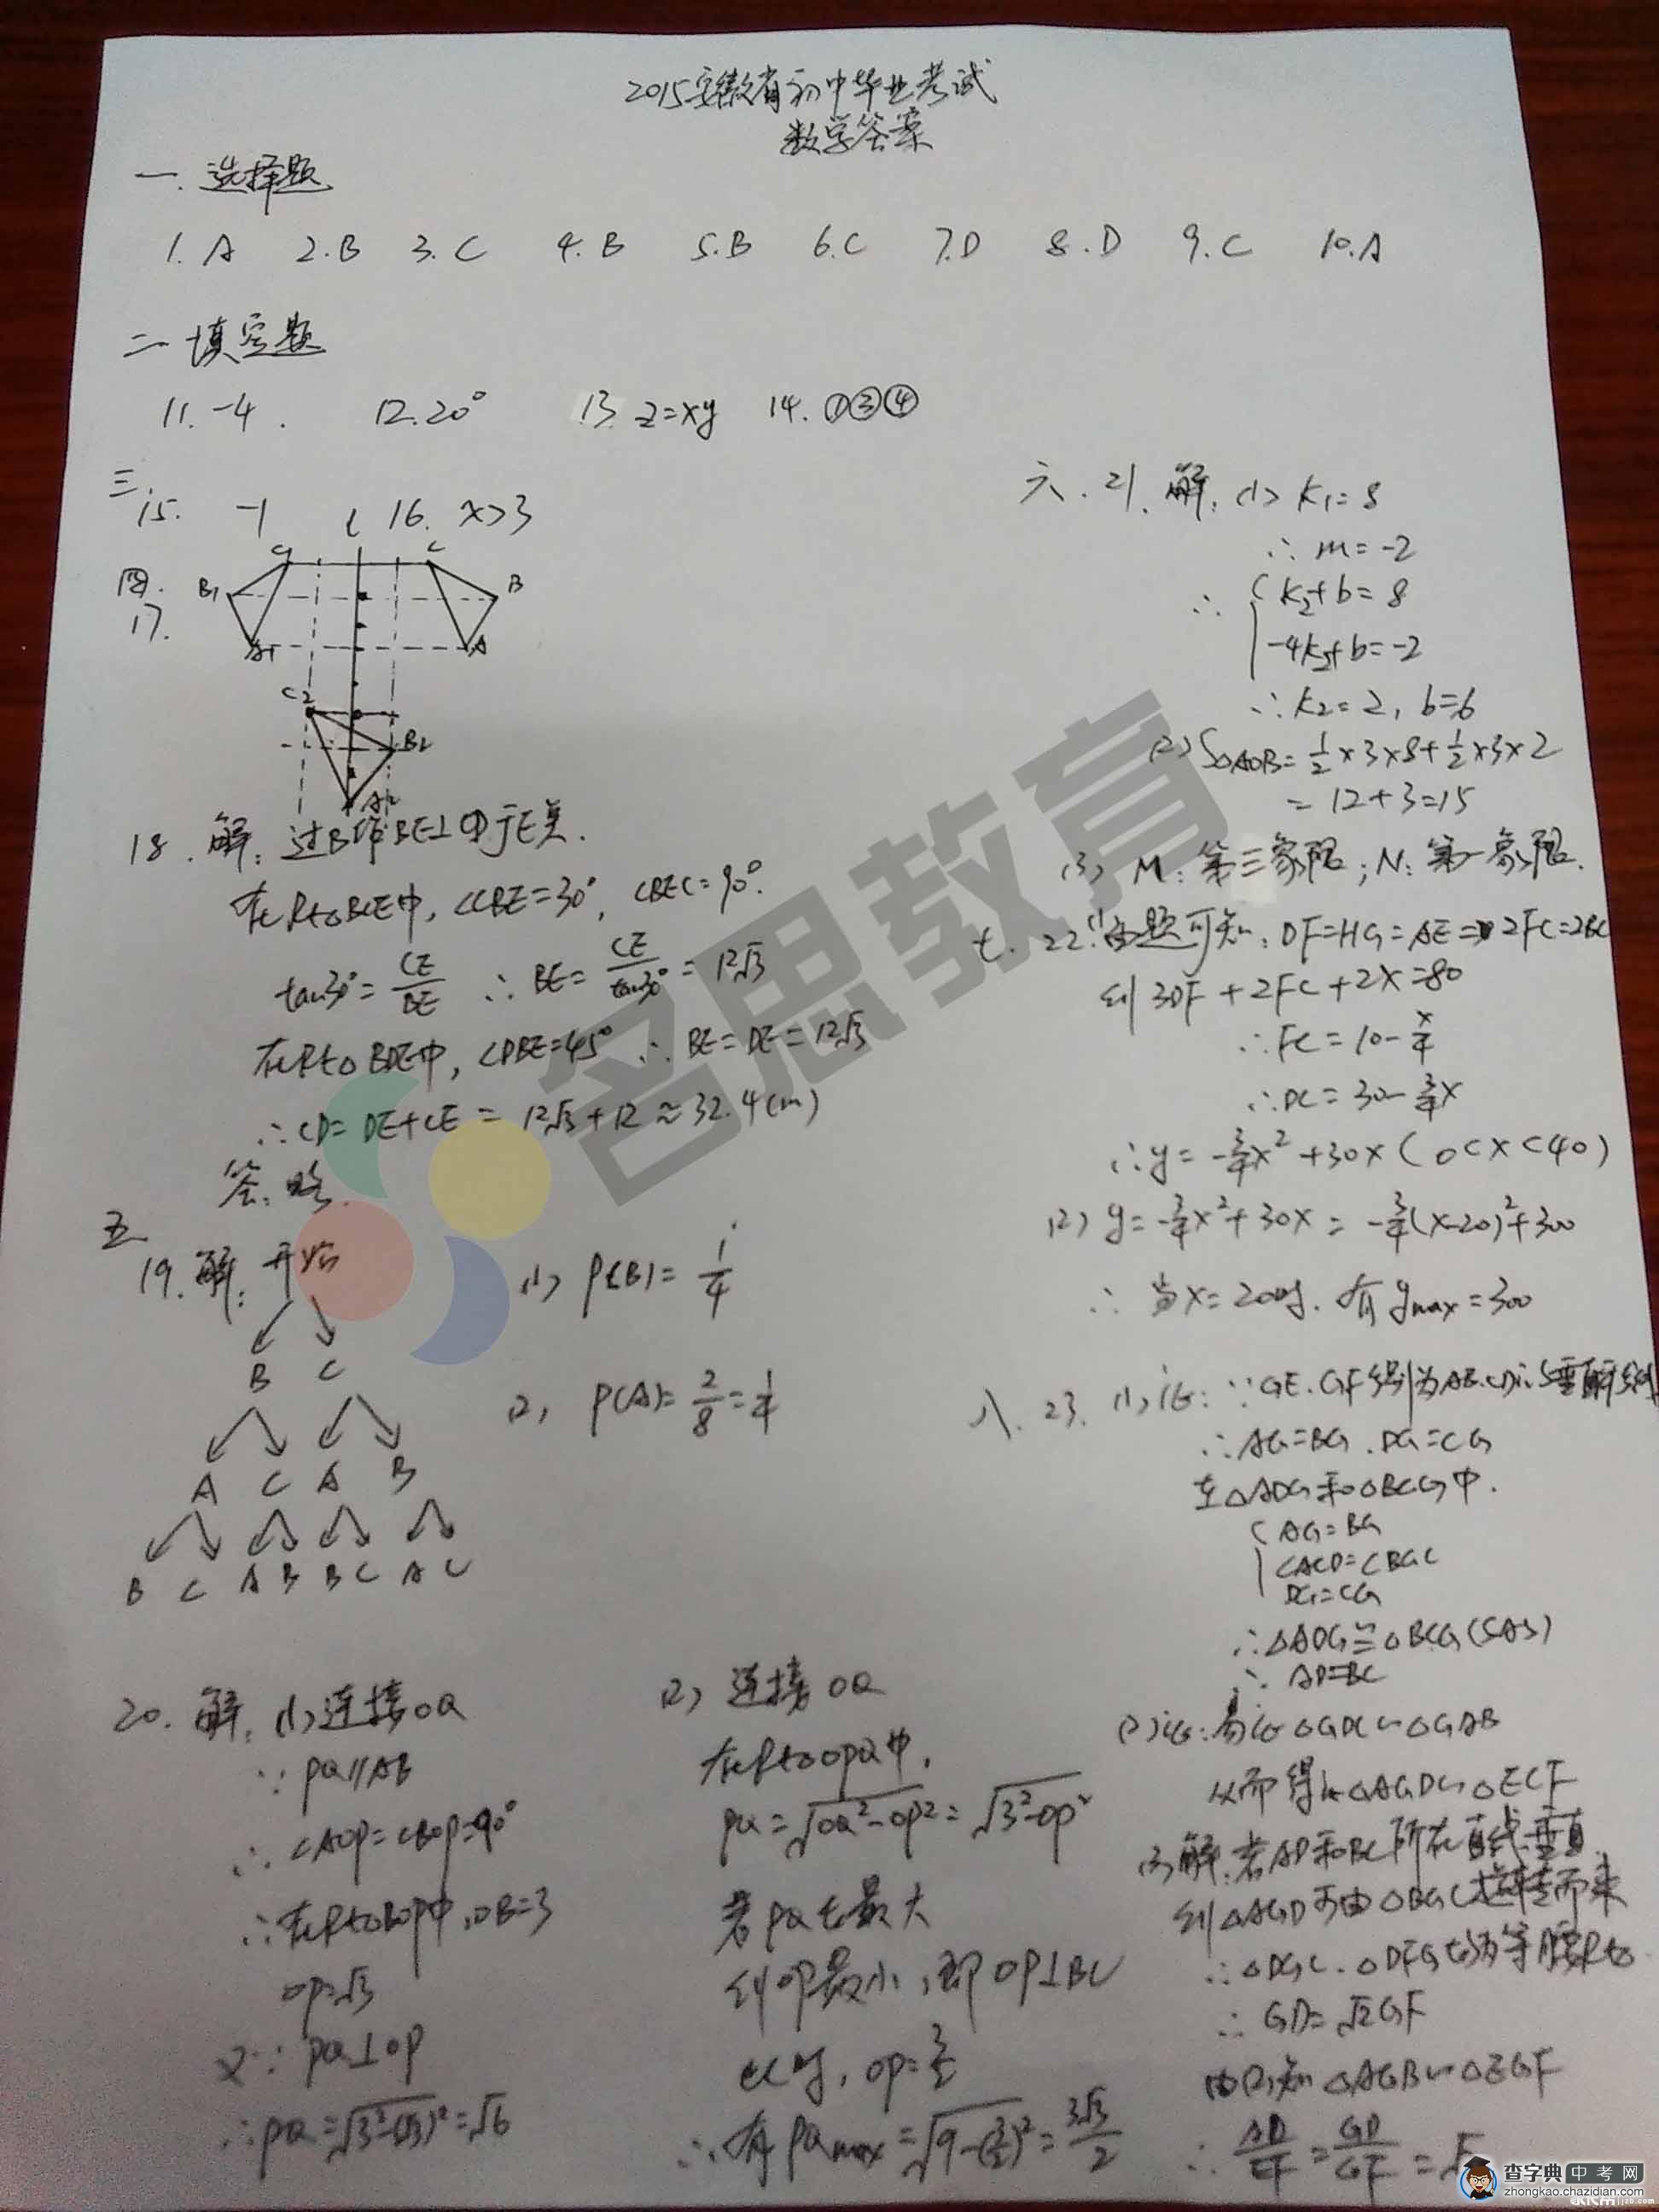 2015安徽省初中毕业考试
数学答案
一. 选择题
1. A 2. B 3. C 4. B 5. B 6. C 7. D 8. D 9. C 10. A
二. 填空题
11. -4. 12. 20° 13. z=xy 14. ①③④
三.
15. -1 16. x>3
四.
17.
l
C1 C
B1 B
A1 A
C2
B2
A2
18. 解: 过B作BE⊥CD于E点.
在Rt△BCE中, ∠CBE=30°, ∠BEC=90°.
tan30°=CE/BE ∴BE=CE/tan30°=12√3
在Rt△BDE中, ∠DBE=45° ∴BE=DE=12√3
∴CD=DE+CE=12√3+12≈32.4(m)
答: 略.
五
19. 解: 开始
B C
A C A B
B C A B B C A C
(1) P(B)=1/4
(2) P(A)=2/8=1/4
20. 解: (1) 连接OQ
∵PQ//AB
∴∠AOP=∠BOP=90°
∴在Rt△BOP中, OB=3
OP=√3
又∵PQ⊥OP
∴PQ=√(3²-(√3)²)=√6
(2) 连接OQ
在Rt△OPQ中,
PQ=√(OQ²-OP²)=√(3²-OP²)
若PQ长最大
则OP最小, 即OP⊥BC
此时, OP=3/2
∴有PQmax=√(9-(3/2)²)=3√3/2
六. 21. 解: (1) K1=8
∴m=-2
∴{K2+b=8
-4K2+b=-2
∴K2=2, b=6
(2) S△AOB=1/2×3×8+1/2×3×2
=12+3=15
(3) M: 第三象限; N: 第一象限.
七. 22. (1) 由题可知: DF=HG=AE=2FC=2BC
则3DF+2FC+2x=80
∴FC=10-x/4
∴DC=30-3/4x
∴y=-3/4x²+30x (0<x<40)
(2) y=-3/4x²+30x=-3/4(x-20)²+300
∴当x=20时. 有ymax=300
八. 23. (1) 证: ∵GE.GF分别为AB.CD的垂直平分线
∴AG=BG. DG=CG
在△ADG和△BCG中.
{AG=BG
∠AGD=∠BGC
DG=CG
∴△ADG≅△BCG(SAS)
∴AD=BC
(2) 证: 易证△GDC∽△GAB
从而得出△AGD∽△EGF
(3) 解: 若AD和BC所在直线垂直,
则△AGD可由△BGC旋转而来
∴△DGC.△DFG均为等腰Rt△
∴GD=√2GF
由(2)知△AGD∽△EGF
∴AD/EF=GD/GF=√2
名思教育
查字典 中考网
zhongkao.chazidian.com